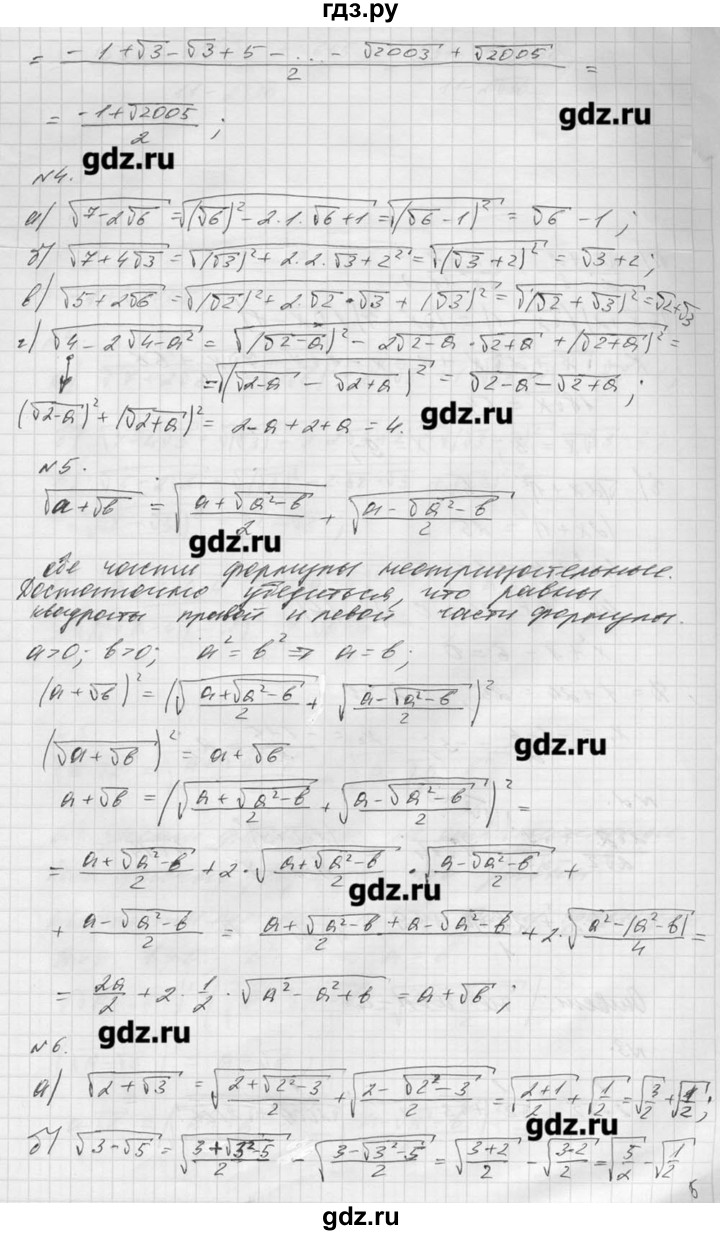 гдз.ру
= (- 1 + √3 - √3 + 5 - ... - √2003 + √2005)/2 =
= (-1 + √2005)/2 ;
gdz.ru
gdz.ru
№4.
а) √(7-2√6) = √((√6)² - 2·1·√6 + 1) = √((√6 - 1)²) = √6 - 1 ;
б) √(7 + 4√3) = √((√3)² + 2·2·√3 + 2²) = √((√3 + 2)²) = √3 + 2 ;
в) √(5 + 2√6) = √((√2)² + 2√2·√3 + (√3)²) = √((√2 + √3)²) = √2+√3
г) √(4 - 2√(4-a²)) = √((√(2-a))² - 2√(2-a)·√(2+a) + (√(2+a))²) =
= √((√(2-a) - √(2+a))²) = √(2-a) - √(2+a) ;
(√(2-a))² + (√(2+a))² = 2-a+2+a = 4.
gdz.ru
№5.
√(a+√b) = √((a+√(a²-b))/2) + √((a-√(a²-b))/2)
gdz.ru
Обе части формулы неотрицательные.
Достаточно убедиться, что равны
квадраты правой и левой части формулы.
a>0; b>0; a² = b² ⇒ a = b;
(a+√b)² = (√((a+√(a²-b))/2) + √((a-√(a²-b))/2))²
(√(a+√b))² = a+√b
gdz.ru
a+√b = (√((a+√(a²-b))/2) + √((a-√(a²-b))/2))² =
= (a+√(a²-b))/2 + 2·√((a+√(a²-b))/2) · √((a-√(a²-b))/2) +
gdz.ru
+ (a-√(a²-b))/2 = (a+√(a²-b)+a-√(a²-b))/2 + 2·√((a²-(a²-b))/4) =
= 2a/2 + 2·1/2·√(a²-a²+b) = a+√b ;
gdz.ru
№6.
а) √(2+√3) = √((2+√(2²-3))/2) + √((2-√(2²-3))/2) = √((2+1)/2) + √(1/2) = √(3/2) + √(1/2) ;
gdz.ru
б) √(3-√5) = √((3+√(3²-5))/2) - √((3-√(3²-5))/2) = √((3+2)/2) - √((3-2)/2) = √(5/2) - √(1/2)
6
gdz.ru